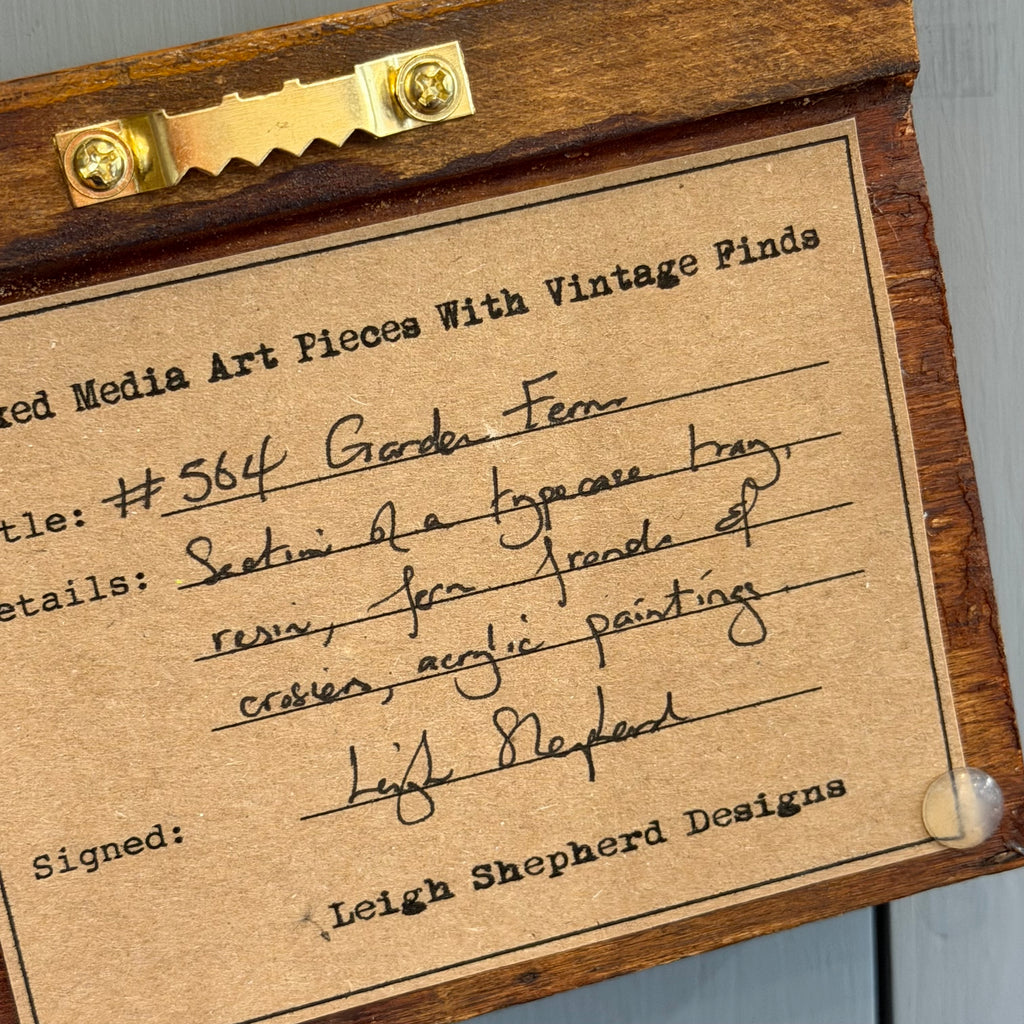 xed Media Art Pieces With Vintage Finds
tle: #564 Garden Fern
etails: Section of a typecase tray,
resin, fern fronds of
crosiers, acrylic paintings.
Signed: Leigh Shepherd
Leigh Shepherd Designs